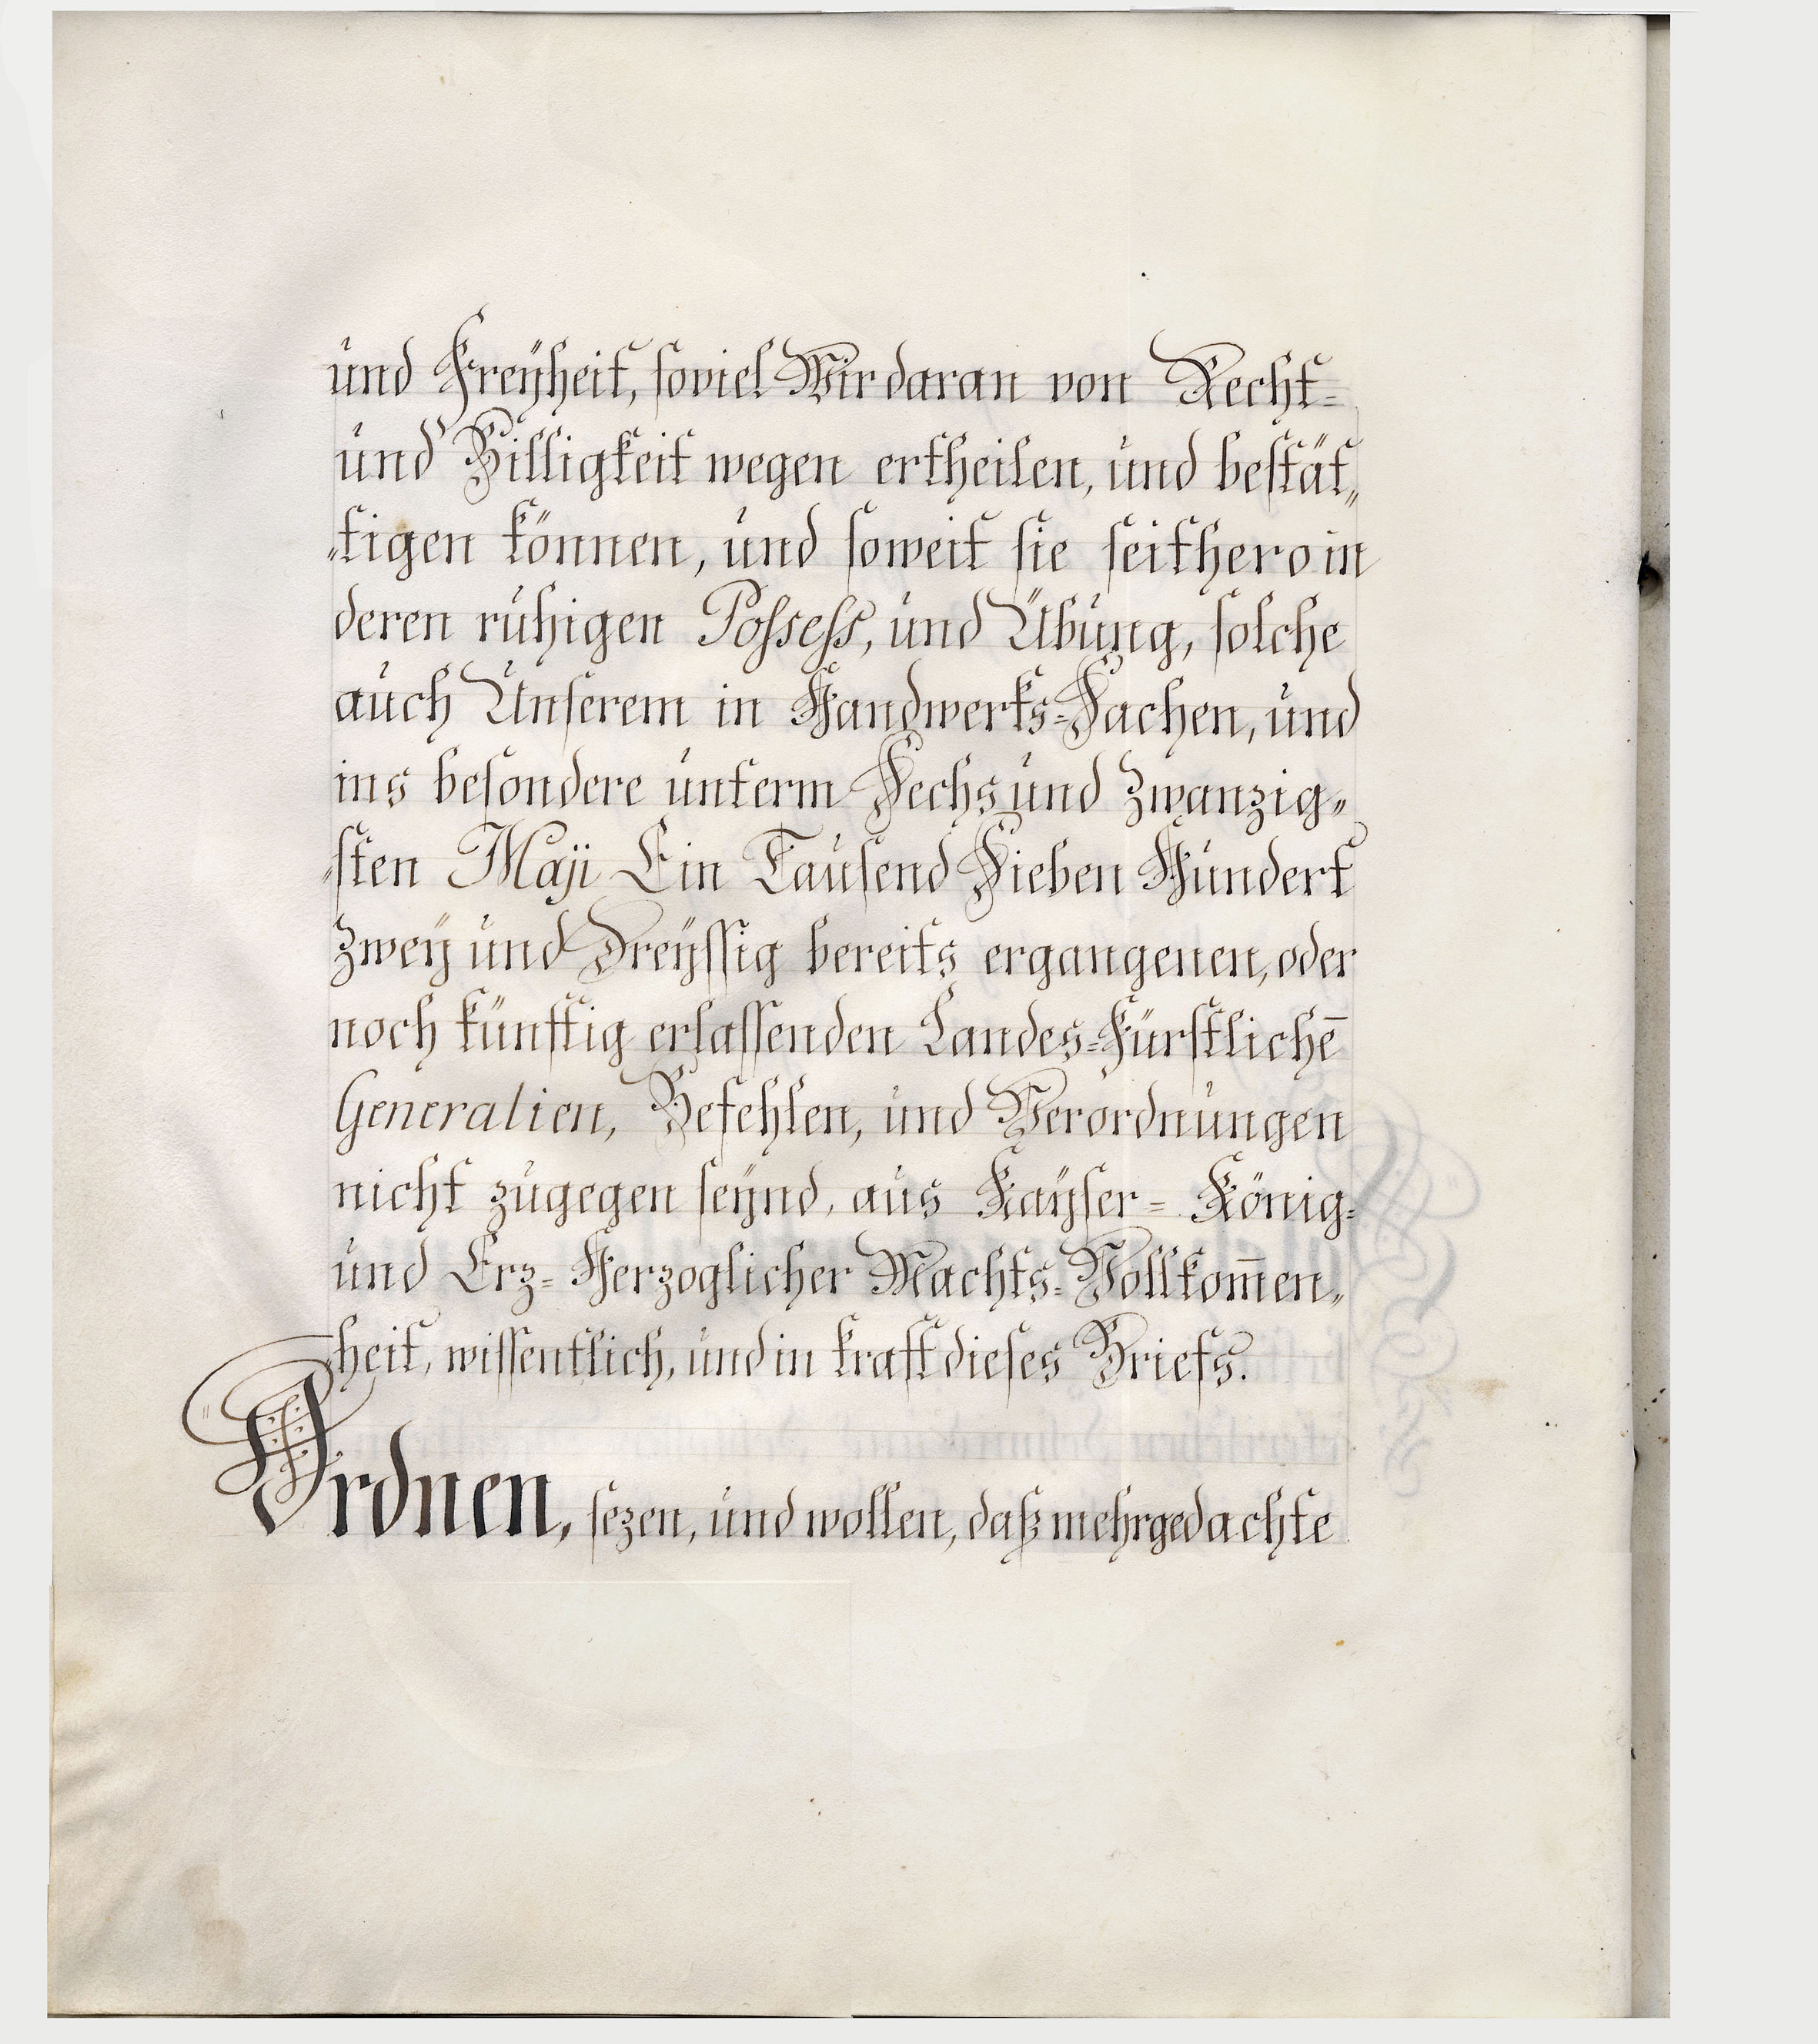 und Freÿheit, soviel Wir daran von Recht=
und Billigkeit wegen ertheilen, und bestät„
„tigen können, und soweit sie seithero in
deren ruhigen Possess, und Übung, solche
auch Unserem in Handwerks=Sachen, und
ins besondere unterm Sechs und Zwanzig„
„sten Maji Ein Tausend Sieben Hundert
Zweÿ und Dreÿssig bereits ergangenen, oder
noch künftig erlassenden Landes=Fürstlichē
Generalien, Befehlen, und Verordnungen
nicht zugegen seÿnd, aus Kaÿser= König=
und Erz=Herzoglicher Machts=Vollkom̅en„
„heit, wissentlich, und in kraft dieses Briefs.
Ordnen, sezen, und wollen, daß mehrgedachte